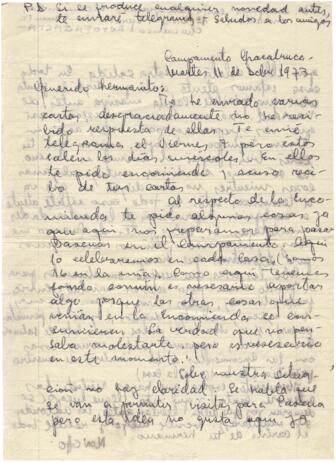 P.D. Si se produce cualquier novedad antes,
te enviaré telegrama. Saludos a los amigos
Campamento Chacabuco.
Martes 11 de Dcbr 1973
Querido hermanito:
Te he enviado varias
cartas, desgraciadamente no he reci-
bido respuesta de ellas. Te envié
telegrama el viernes, pero estos
salen los días miércoles. En ellos
te pido encomienda y acuso reci-
bo de tus cartas.
Al respecto de la enco-
mienda te pido algunas cosas, ya
que aquí nos preparamos para pasar
Pascuas en el Campamento. Aquí
lo celebraremos en cada casa, (somos
16 en la mía). Como aquí tenemos
fondo común es necesario aportar
algo porque las otras cosas que
venían en la encomienda se con-
sumieron. La verdad que no pen-
saba molestarte, pero es necesario
en este momento.
Sobre nuestra situa-
ción no hay claridad. Se habla que
se van a permitir visitas para Pascua
pero esta idea no gusta aquí, ya